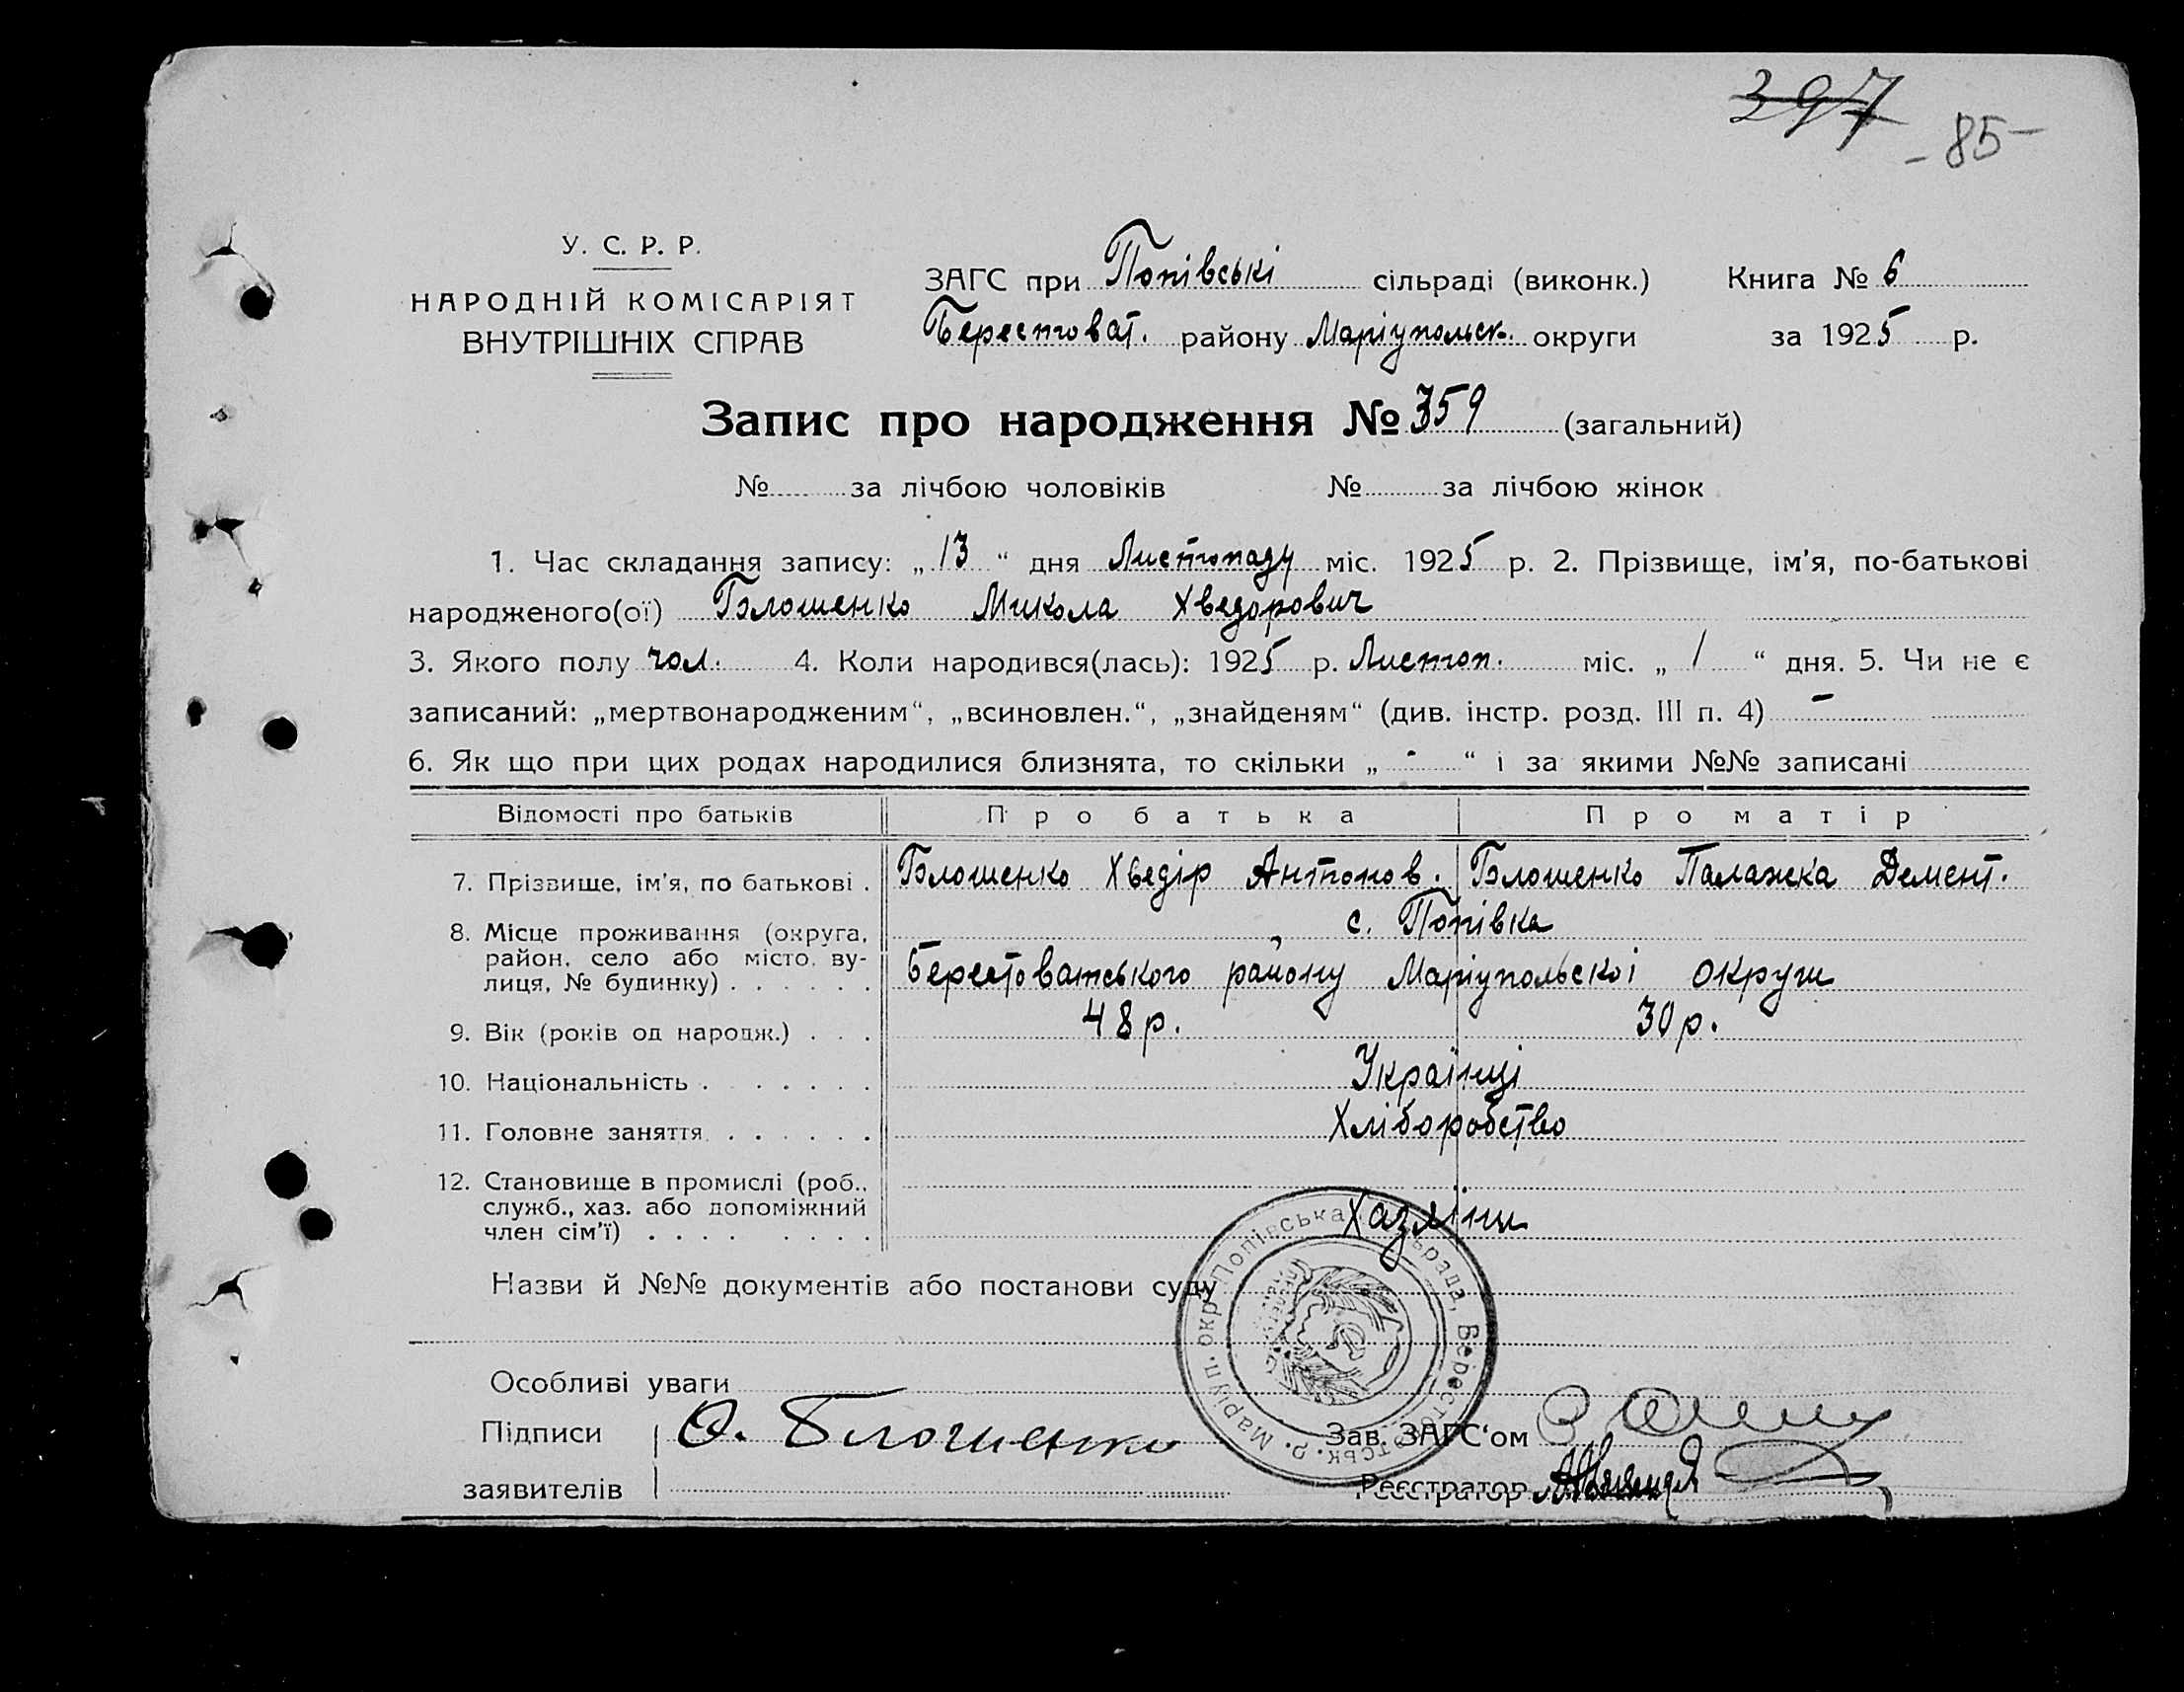 397
- 85 -
У. С. Р. Р.
НАРОДНІЙ КОМІСАРІЯТ
ВНУТРІШНІХ СПРАВ
ЗАГС при Попівські сільраді (виконк.) Книга № 6
Берестоват. району Маріупольск. округи за 1925 р.
Запис про народження № 359 (загальний)
№ за лічбою чоловіків № за лічбою жінок
1. Час складання запису: „ 13 “ дня Листопаду міс. 1925 р. 2. Прізвище, ім'я, по-батькові
народженого(ої) Блошенко Микола Хведорович
3. Якого полу чол. 4. Коли народився(лась): 1925 р. Листоп. міс. „ 1 “ дня. 5. Чи не є
записаний: „мертвонародженим“, „всиновлен.“, „знайденям“ (див. інстр. розд. III п. 4) -
6. Як що при цих родах народилися близнята, то скільки „ - “ і за якими №№ записані
Відомості про батьків Про батька Про матір
7. Прізвище, ім'я, по батькові . Блошенко Хведір Антонов. Блошенко Палажка Демент.
8. Місце проживання (округа, с. Попівка
район, село або місто, ву-
лиця, № будинку) . . . . . . Берестоватського району Маріупольскоі округи
9. Вік (років од народж.) . . . 48 р. 30 р.
10. Національність . . . . . . Українці
11. Головне заняття . . . . . . Хліборобство
12. Становище в промислі (роб.,
служб., хаз. або допоміжний Хазяїни
член сім'ї) . . . . . . . .
Попівська сільрада, Берестоватськ. р. Маріуп. окр.
Назви й №№ документів або постанови суду
Особливі уваги
Підписи О. Блошенко Зав. ЗАГС‘ом
заявителів Реєстратор